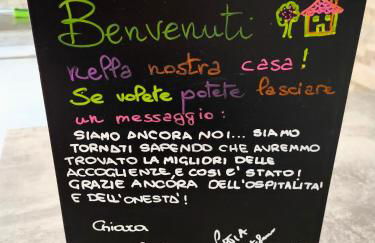 Benvenuti
nella nostra casa!
Se volete potete lasciare
un messaggio:
SIAMO ANCORA NOI... SIAMO
TORNATI SAPENDO CHE AVREMMO
TROVATO LA MIGLIORI DELLE
ACCOGLIENZE E COSI E' STATO!
GRAZIE ANCÓRA DELL'OSPITALITA'
E DELL'ONESTA'!
Chiara